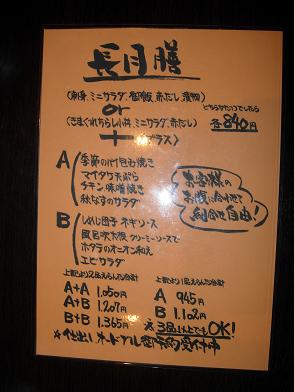 長月膳
(刺身、ミニサラダ、香の物、赤だし、漬物)
or
どちらか1つでしたら
各840円
(きまぐれちらし小丼、ミニサラダ、赤だし)
+
プラス
A
季節の竹包み焼き
マイタケ天ぷら
チキン味噌焼き
秋なすのサラダ
お客様の
お腹に合わせて
組合せ自由!
B
ネギソース
風呂吹大根 クリーミーソースで
ホタテのオニオン和え
エビサラダ
上記より2品えらんだ合計
A+A 1.050円
A+B 1.207円
B+B 1.365円
上記より1品えらんだ合計
A 945円
B 1.102円
☆3品以上でもOK!
☆仕出し オードブル 御予約受付中